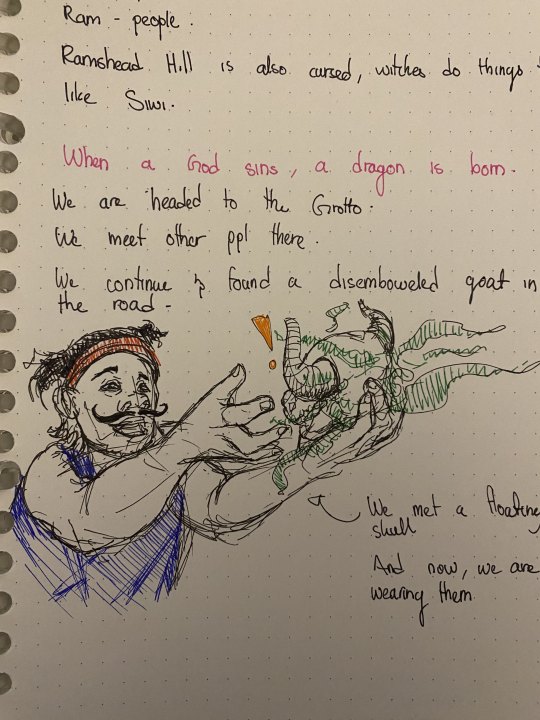 Ram - people.
Ramshead Hill is also cursed, witches do things
like Siwi.
When a God sins, a dragon is born.
We are headed to the Grotto.
We meet other ppl there.
We continue & found a disemboweled goat in
the road -
!
We met a floating
skull
And now, we are
wearing them.